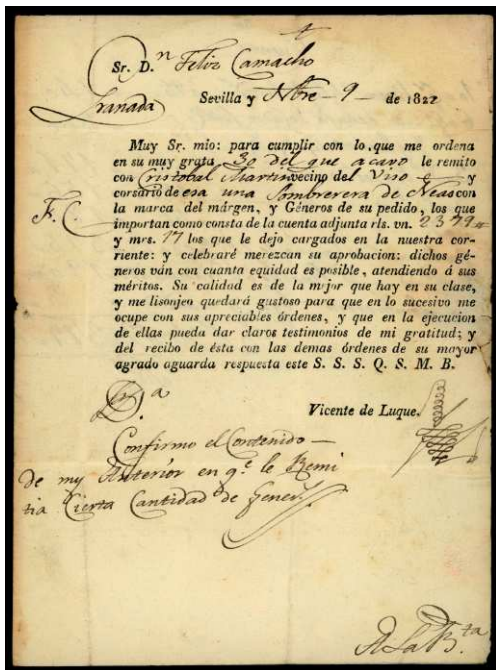 Sr. D.n Felix Camacho
Granada
Sevilla y Nbre 9 de 1822
Muy Sr. mio: para cumplir con lo que me ordena
en su muy grata 30 del que acavo le remito
con Cristobal Martin vecino del Viso y
corsario de esa una Sombrerera de Neas con
F. C. la marca del márgen, y Géneros de su pedido, los que
importan como consta de la cuenta adjunta rls. vn. 2379
y mrs. 17 los que le dejo cargados en la nuestra cor-
riente: y celebraré merezcan su aprobacion: dichos gé-
neros ván con cuanta equidad es posible, atendiendo á sus
méritos. Su calidad es de la mejor que hay en su clase,
y me lisonjeo quedará gustoso para que en lo sucesivo me
ocupe con sus apreciables órdenes, y que en la ejecucion
de ellas pueda dar claros testimonios de mi gratitud; y
del recibo de ésta con las demas órdenes de su mayor
agrado aguarda respuesta este S. S. S. Q. S. M. B.
Vicente de Luque.
Confirmo el Contenido
de my Anterior en q.e le Remi
tia Cierta Cantidad de Gener.s